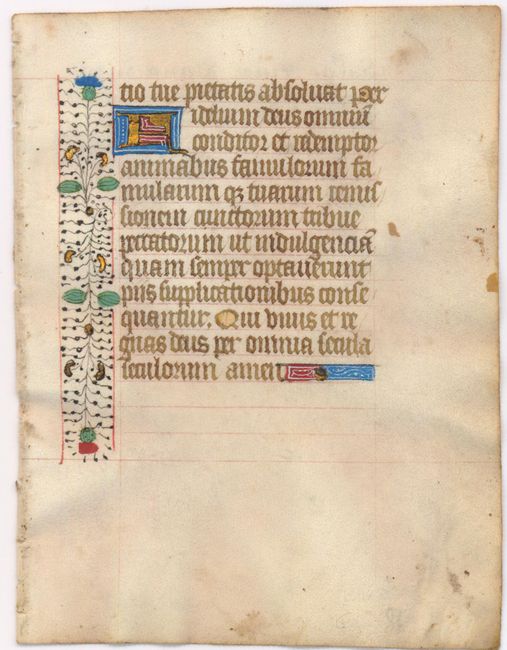 tio tue pietatis absoluat per
Fidelium deus omniū
conditor et redemptor
animabus famulorum fa
mularum qȝ tuarum remis
sionem cunctorum tribue
peccatorum ut indulgenciā
quam semper optauerunt
piis supplicationibus conse
quantur. Qui viuis et re
gnas deus per omnia secula
seculorum amen